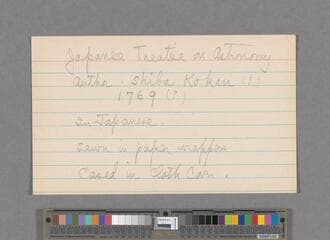 Japanese Treatise on Astronomy
Author - Shiba Kokan (?)
1769 (?)
In Japanese.
Sewn in paper wrappers
Cased in cloth Cover.